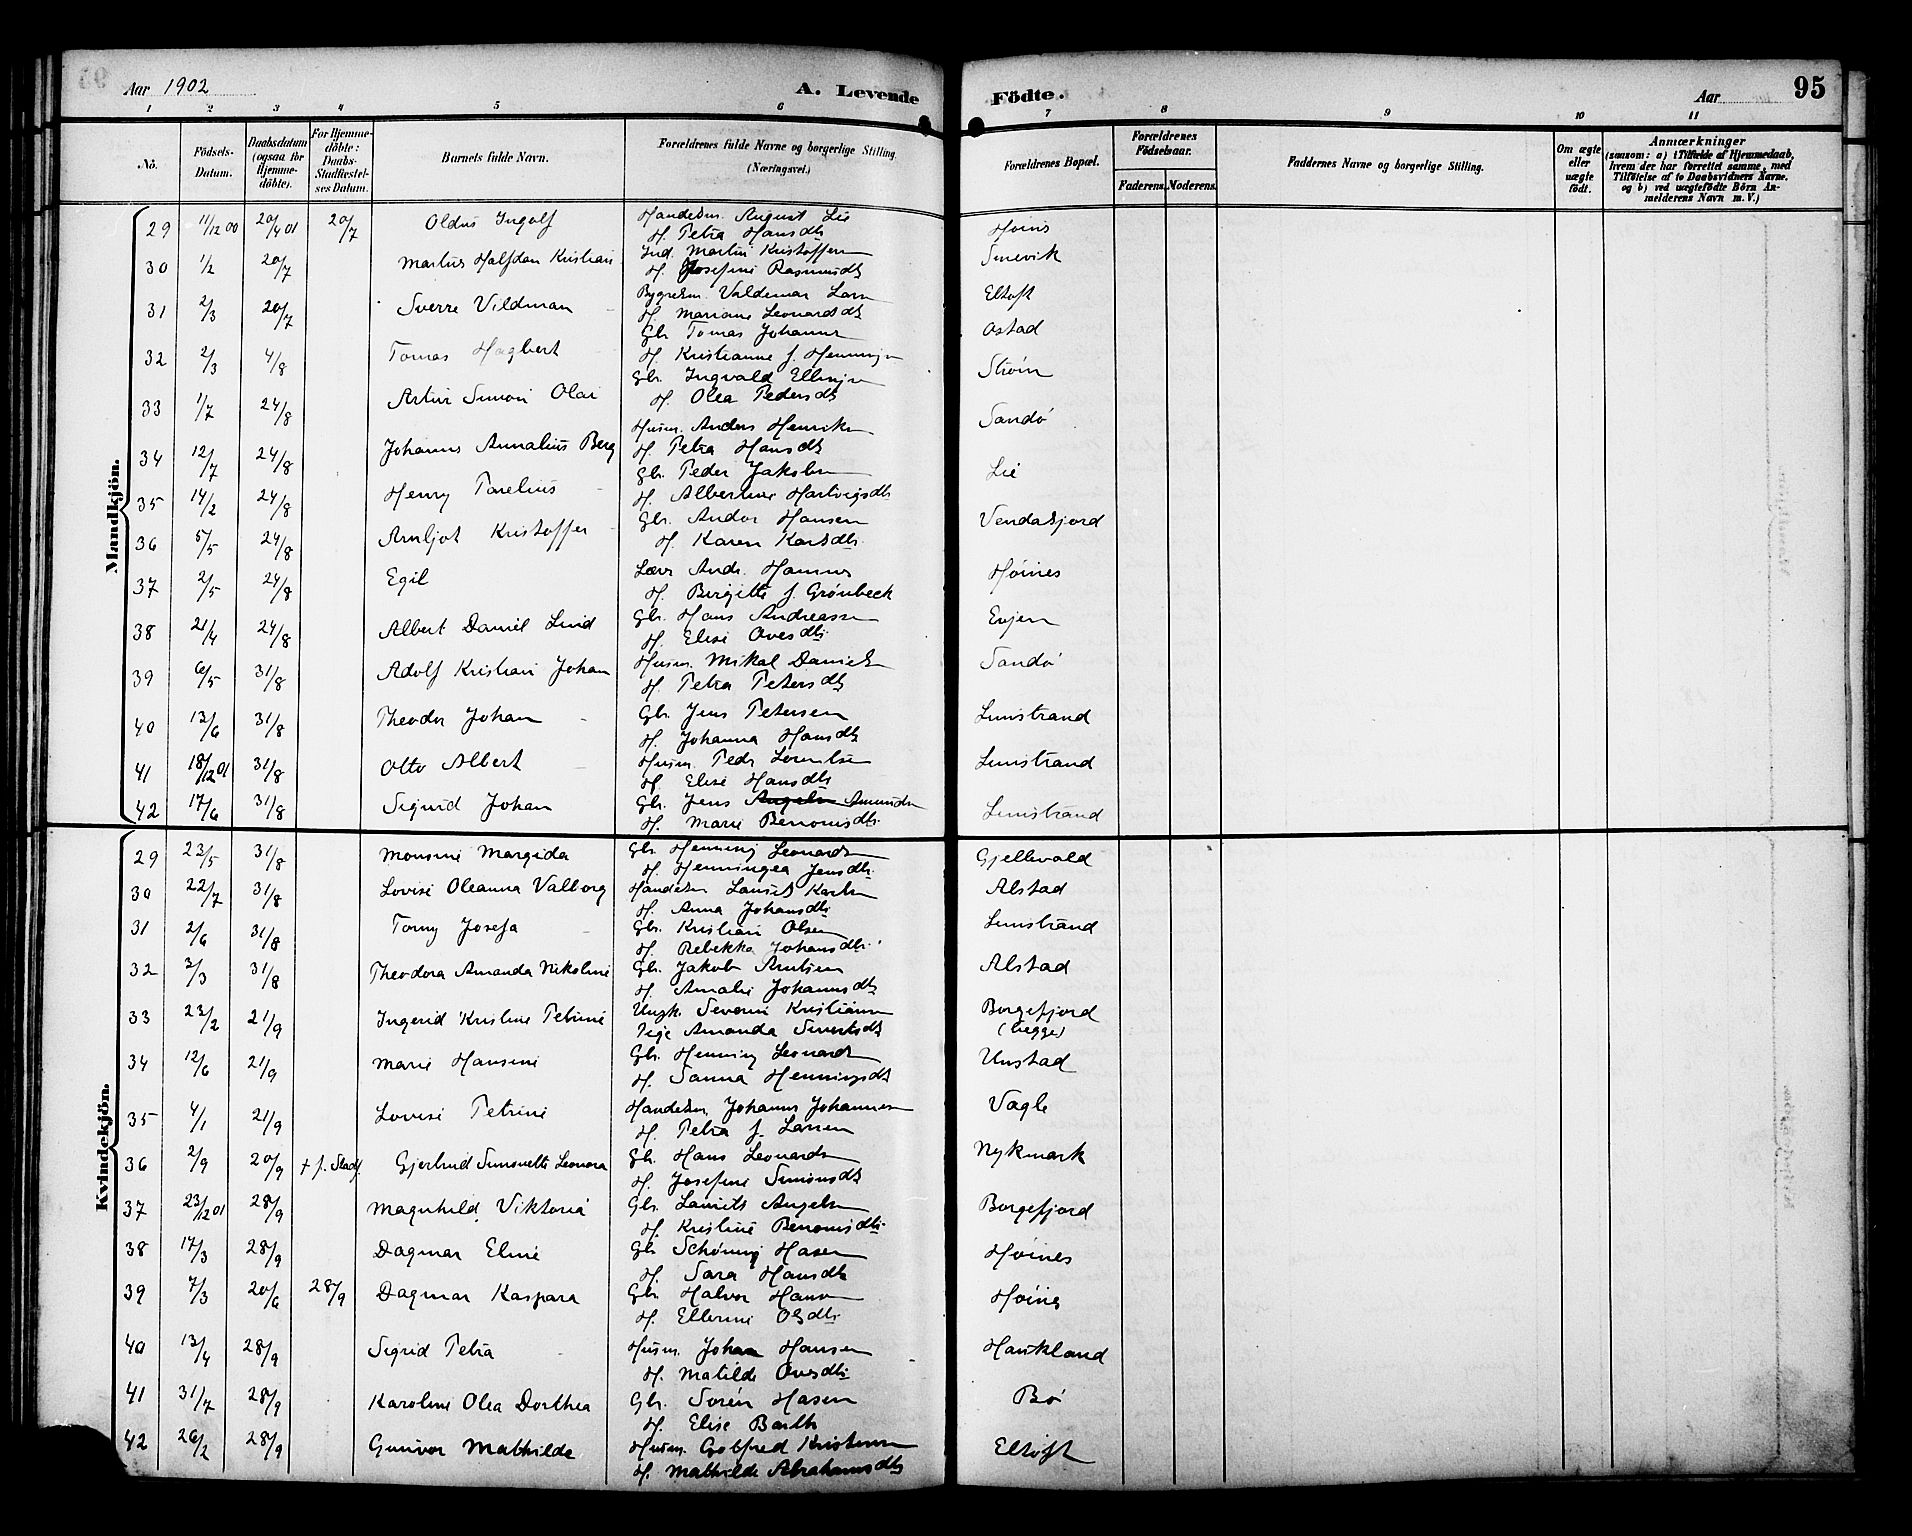 Aar 1902
A. Levende
Födte.
Aar
95
1 2 3 4 5 6 7 8 9 10 11
No.
Födsels-Datum.
Daabsdatum (ogsaa for Hjemme-döbte).
For Hjemme-döbte: Daabs-Stadfæstel-ses Datum.
Barnets fulde Navn.
Forældrenes fulde Navne og borgerlige Stilling. (Næringsvei.)
Forældrenes Bopæl.
Forældrenes Födselsaar.
Faderens.
Moderens.
Faddernes Navne og borgerlige Stilling.
Om ægte eller uægte födt.
Anmærkninger
(saasom: a) i Tilfælde af Hjemmedaab, hvem der har forrettet samme, med Tilföielse af to Daabsvidners Navne, og b) ved uægtefödte Börn An-melderens Navn m. V.)
Mandkjön.
29 11/12 00 20/4 01 20/7 Oldus Ingolf Handelsm. August Lie Høins
H. Petra Hansdtr
30 1/2 20/7 Martus Halfdan Kristian Ind. Martin Kristoffersen
H. Josefine Rasmusdtr
31 2/3 20/7 Sverre Vildman Valdemar Larsen Eltoft
H. Mariane Leonardsdtr
32 2/3 4/8 Tomas Hagbert Gbr. Tomas Johannes Ostad
H. Kristianne f. Henningsen
33 1/7 24/8 Artur Simon Olai Gbr. Ingvald Ellingsen Strøm
H. Olea Pedersdtr
34 12/7 24/8 Johannes Annalius Berg Husm. Anders Henriksen Sandö
H. Petra Hansdtr
35 14/2 24/8 Henry Torelius Gbr. Peder Jakobsen Lie
H. Albertine Hartvigsdtr
36 5/5 24/8 Arnljot Kristoffer Gbr. Andor Hansen Vendalsjord
H. Karen Karlsdtr.
37 2/5 24/8 Egil Lærer Andr. Hannes Høines
H. Birgitte f. Grönbeck
38 21/4 24/8 Albert Daniel Lind Gbr. Hans Andreassen Evjen
H. Elise Ovesdtr.
39 6/5 31/8 Adolf Kristian Johan Husm. Mikal Danielsen Sandö
H. Petra Petersdtr
40 13/6 31/8 Theodor Johan Gbr. Jens Petersen Limstrand
H. Johanna Hansdtr
41 18/12 01 31/8 Otto Albert Husm. Peder Lorentsen Limstrand
H. Elise Hansdtr
42 17/6 31/8 Sigurd Johan Gbr. Jens Angelsen Amundsen Limstrand
H. Marie Benonisdtr.
Kvindekjön.
29 23/5 31/8 Monsine Margida Gbr. Henning Leonardsen Gjellevold
H. Henningea Jensdtr.
30 22/7 31/8 Lovise Oleanna Valborg Handelsm. Laurits Karlsen Alstad
H. Anna Johansdtr
31 2/6 31/8 Tomy Josefa Gbr. Kristian Olsen Limstrand
H. Rebekka Johansdtr.
32 2/3 31/8 Theodora Amanda Nikoline Gbr. Jakob Arntsen Alstad
H. Amalie Johannesdtr
33 23/2 21/9 Ingerid Kristine Petrine Ungk. Severin Kristiansen Borgefjord
Pige Amanda Sivertsdtr (begge)
34 12/6 21/9 Marie Hansine Gbr. Henning Leonardsen Unstad
H. Sanna Henningsdtr
35 4/1 21/9 Lovise Petrine Handelsm. Johannes Johannesen Vagle
H. Petra f. Larsen
36 2/9 20/9 + f. Stadf. Gjertrud Simonette Leonora Gbr. Hans Leonardsen Nykmark
H. Josefine Simonsdtr
37 23/12 01 28/9 Magnhild Viktoria Gbr. Laurits Angelsen Borgefjord
H. Kristine Benonisdtr.
38 17/3 28/9 Dagmar Eline Gbr. Schöning Hasen Høines
H. Sara Hansdtr
39 7/3 20/6 28/9 Dagmar Kaspara Gbr. Halvor Hansen Høines
H. Ellerine Olsdtr.
40 13/4 28/9 Sigrid Petra Husm. Johan Hansen Haukland
H. Matilde Ovesdtr.
41 31/7 28/9 Karoline Olea Dorthea Gbr. Sorén Hasen Bö
H. Elise Barth
42 26/2 28/9 Gunvor Mathilde Husm. Gotfred Kristensen Eltoft
H. Mathilde Abrahamsdtr